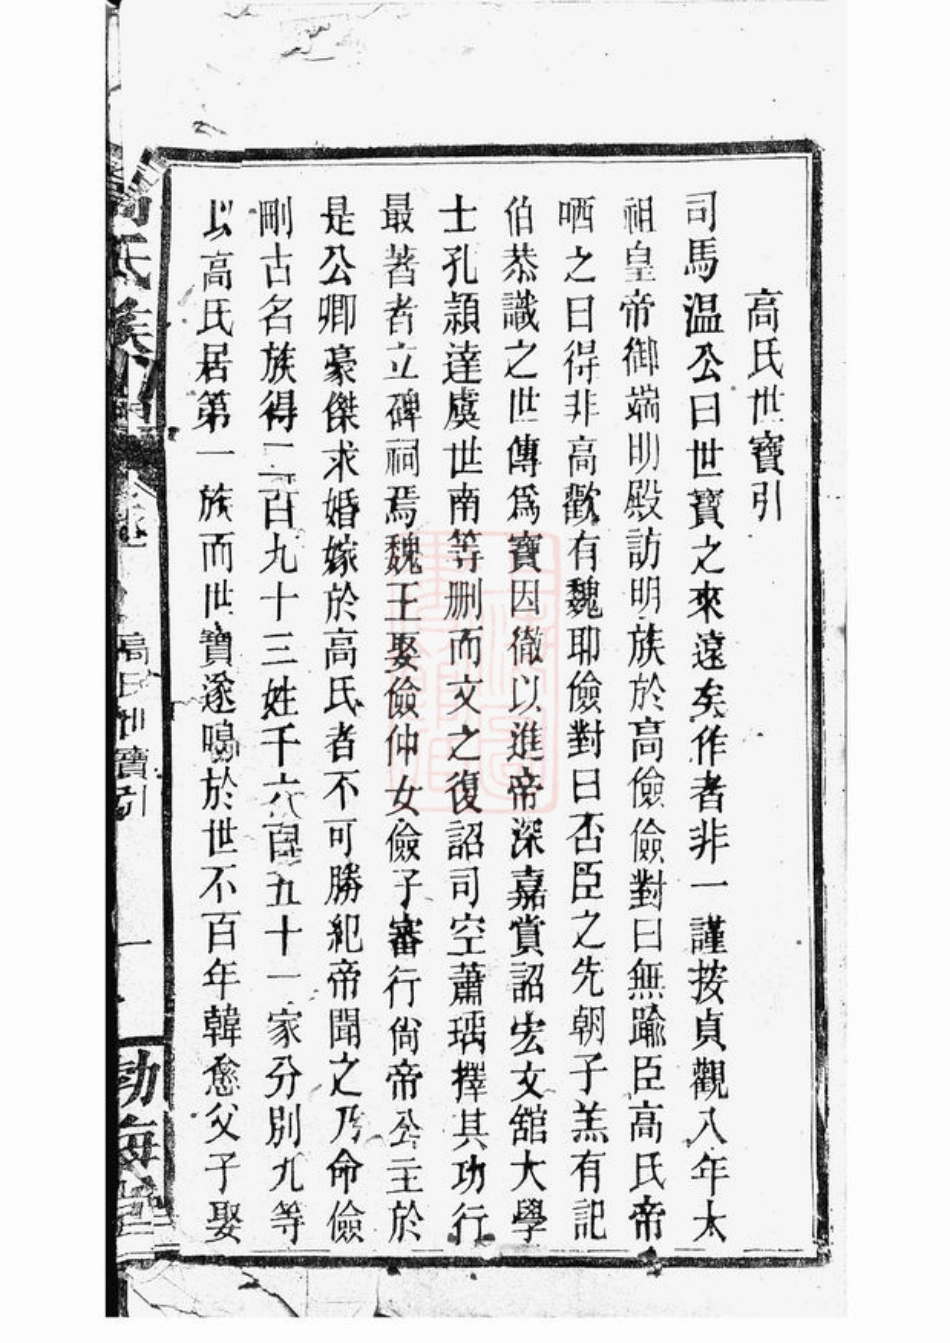 高氏世寶引
司馬温公曰世寶之來遠矣作者非一謹按貞觀八年太
祖皇帝御端明殿訪明族於高儉儉對曰無踰臣高氏帝
哂之曰得非高歡有魏耶儉對曰否臣之先朝子羔有記
伯恭識之世傳爲寶因徹以進帝深嘉賞詔宏文舘大學
士孔頴達虞世南等删而文之復詔司空蕭瑀擇其功行
最著者立碑祠焉魏王娶儉仲女儉子審行尙帝公主於
是公卿豪傑求婚嫁於高氏者不可勝紀帝聞之乃命儉
剛古名族得二百九十三姓千六百五十一家分別九等
以高氏居第一族而世寶遂鳴於世不百年韓愈父子娶
高氏族譜
高氏世寶引
一
勃海堂